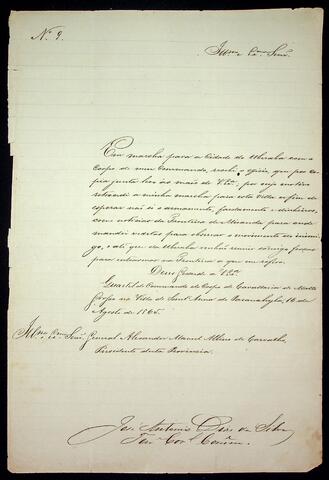 N. 9.
Illmo e Exmo Senr.
Em marcha para a Cidade de Uberaba com o
Corpo de meu Commando, recebi o officio, que por co-
pia junta levo ás mãos de V. Exa, por cujo motivo
retrocedi a minha marcha para esta Villa a fim de
esperar não só o armamento, fardamento e dinheiros,
com noticias da Fronteira de Miranda para onde
mandei vedetas para observar o movimento do inimi-
go, e até que da Uberaba venhão reunir comigo forças
para entrarmos na Fronteira a que me refiro.
Deus Guarde a V. Exa
Quartel do Commando do Corpo de Cavallaria de Matto
Grosso na Villa de Sant'Anna do Paranahyba, 16 de
Agosto de 1865.
Illmo Exmo Senr General Alexandre Manoel Albino de Carvalho,
Presidente desta Provincia.
José Antonio Dias da Silva
Ten. Corl Comm.